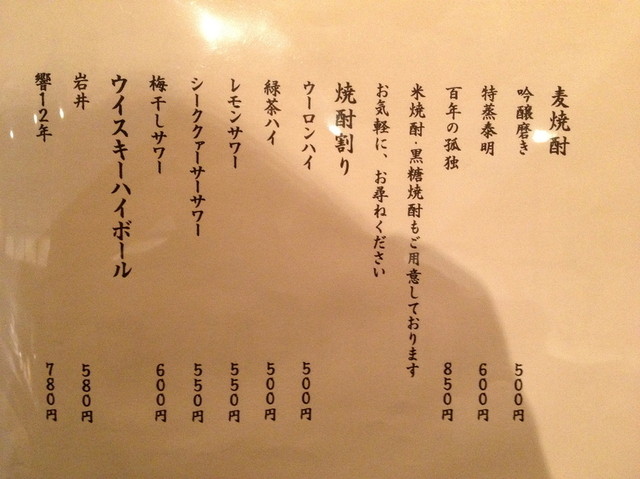 麦焼酎
吟醸磨き 500円
特蒸泰明 600円
百年の孤独 850円
米焼酎・黒糖焼酎もご用意しております
お気軽に、お尋ねください
焼酎割り
ウーロンハイ 500円
緑茶ハイ 500円
レモンサワー 550円
シークァーサーサワー 550円
梅干しサワー 600円
ウイスキーハイボール
岩井 580円
響12年 780円